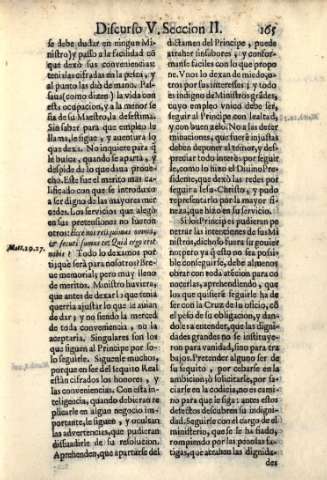 Discurso V. Seccion II. 165
se debe dudar en ningun Mi-
nistro) y passo a la facilidad cõ
que dexò sus conveniencias:
tenialas cifradas en la pesca, y
al punto las diò de mano. Pas-
saua (como dizen) la vida con
esta ocupacion, y a la menor se
ña de su Maestro, la desestima.
Sin saber para que empleo le
llama, le sigue, y auentura lo
que dexa. No inquiere para q̃
le busca, quando se aparta, y
despide de lo que daua proue-
cho. Este fue el merito mas ca-
lificado con que se introduxo
a ser digno de las mayores mer
cedes. Los servicios que alegò
en sus pretensiones no fueron
otros: Ecce nos reliquimus omnia,
& secuti sumus te: Quid ergo erit
nobis?
Matt. 19. 27.
Todo lo dexamos por
ti; què serà para nosotros? Bre-
ue memorial; pero muy lleno
de meritos. Ministro huviera,
que antes de dexar lo que tenia
querria ajustar lo que le auian
de dar; y no siendo la merced
de toda conveniencia, no la
aceptaria. Singulares son los
que siguen al Principe por so-
lo seguirle. Siguenle muchos,
porque en ser del sequito Real
estàn cifrados los honores, y
las conveniencias. Con esta in-
teligencia, quando debieran re
plicarle en algun negocio im-
portante, le siguen, y ocultan
las advertencias, que pudieran
dissuadirle de su resolucion.
Aprehenden, que apartarse del
dictamen del Principe, puede
atraher sinsabores, y confor-
manse faciles con lo que propo
ne. Vnos lo dexan de miedo, o-
tros por sus interesses; y todo
es indigno de Ministros grãdes,
cuyo empleo vnico debe ser,
seguir al Principe con lealtad,
y con buen zelo. No a las deter
minaciones, que fueren injustas
deben deponer al temor, y des-
preciar todo interès por seguir
le, como lo hizo el Divino Pre-
sidente; que dexò las redes por
seguir a Iesu-Christo, y pudo
representarlo por la mayor fi-
neza, que hizo en su servicio.
Si los Principes pudieran pe-
netrar las intenciones de sus Mi
nistros, dicholo fuera su gouier
no; pero ya q̃ esto no sea possi-
ble conseguirse, debe alomenos
obrar con toda atencion para co
nocerlas, aprehendiendo, que
los que quisieren seguirle ha de
ser con la Cruz de su oficio, cõ
el peso de su obligacion, y dan-
doles a entender, que las digni-
dades grandes no se instituye-
ron para vanidad, sino para tra
bajos. Pretender alguno ser de
su sequito, por cebarse en la
ambicion, ò solicitarle, por sa-
ciarse en la codicia, no es cami-
no para que le siga: antes estos
defectos descubren su indigni-
dad. Seguirle con el cargo de el
ministerio, que se le ha dado,
rompiendo por las penosas fa-
tigas, que atraben las dignida-
des